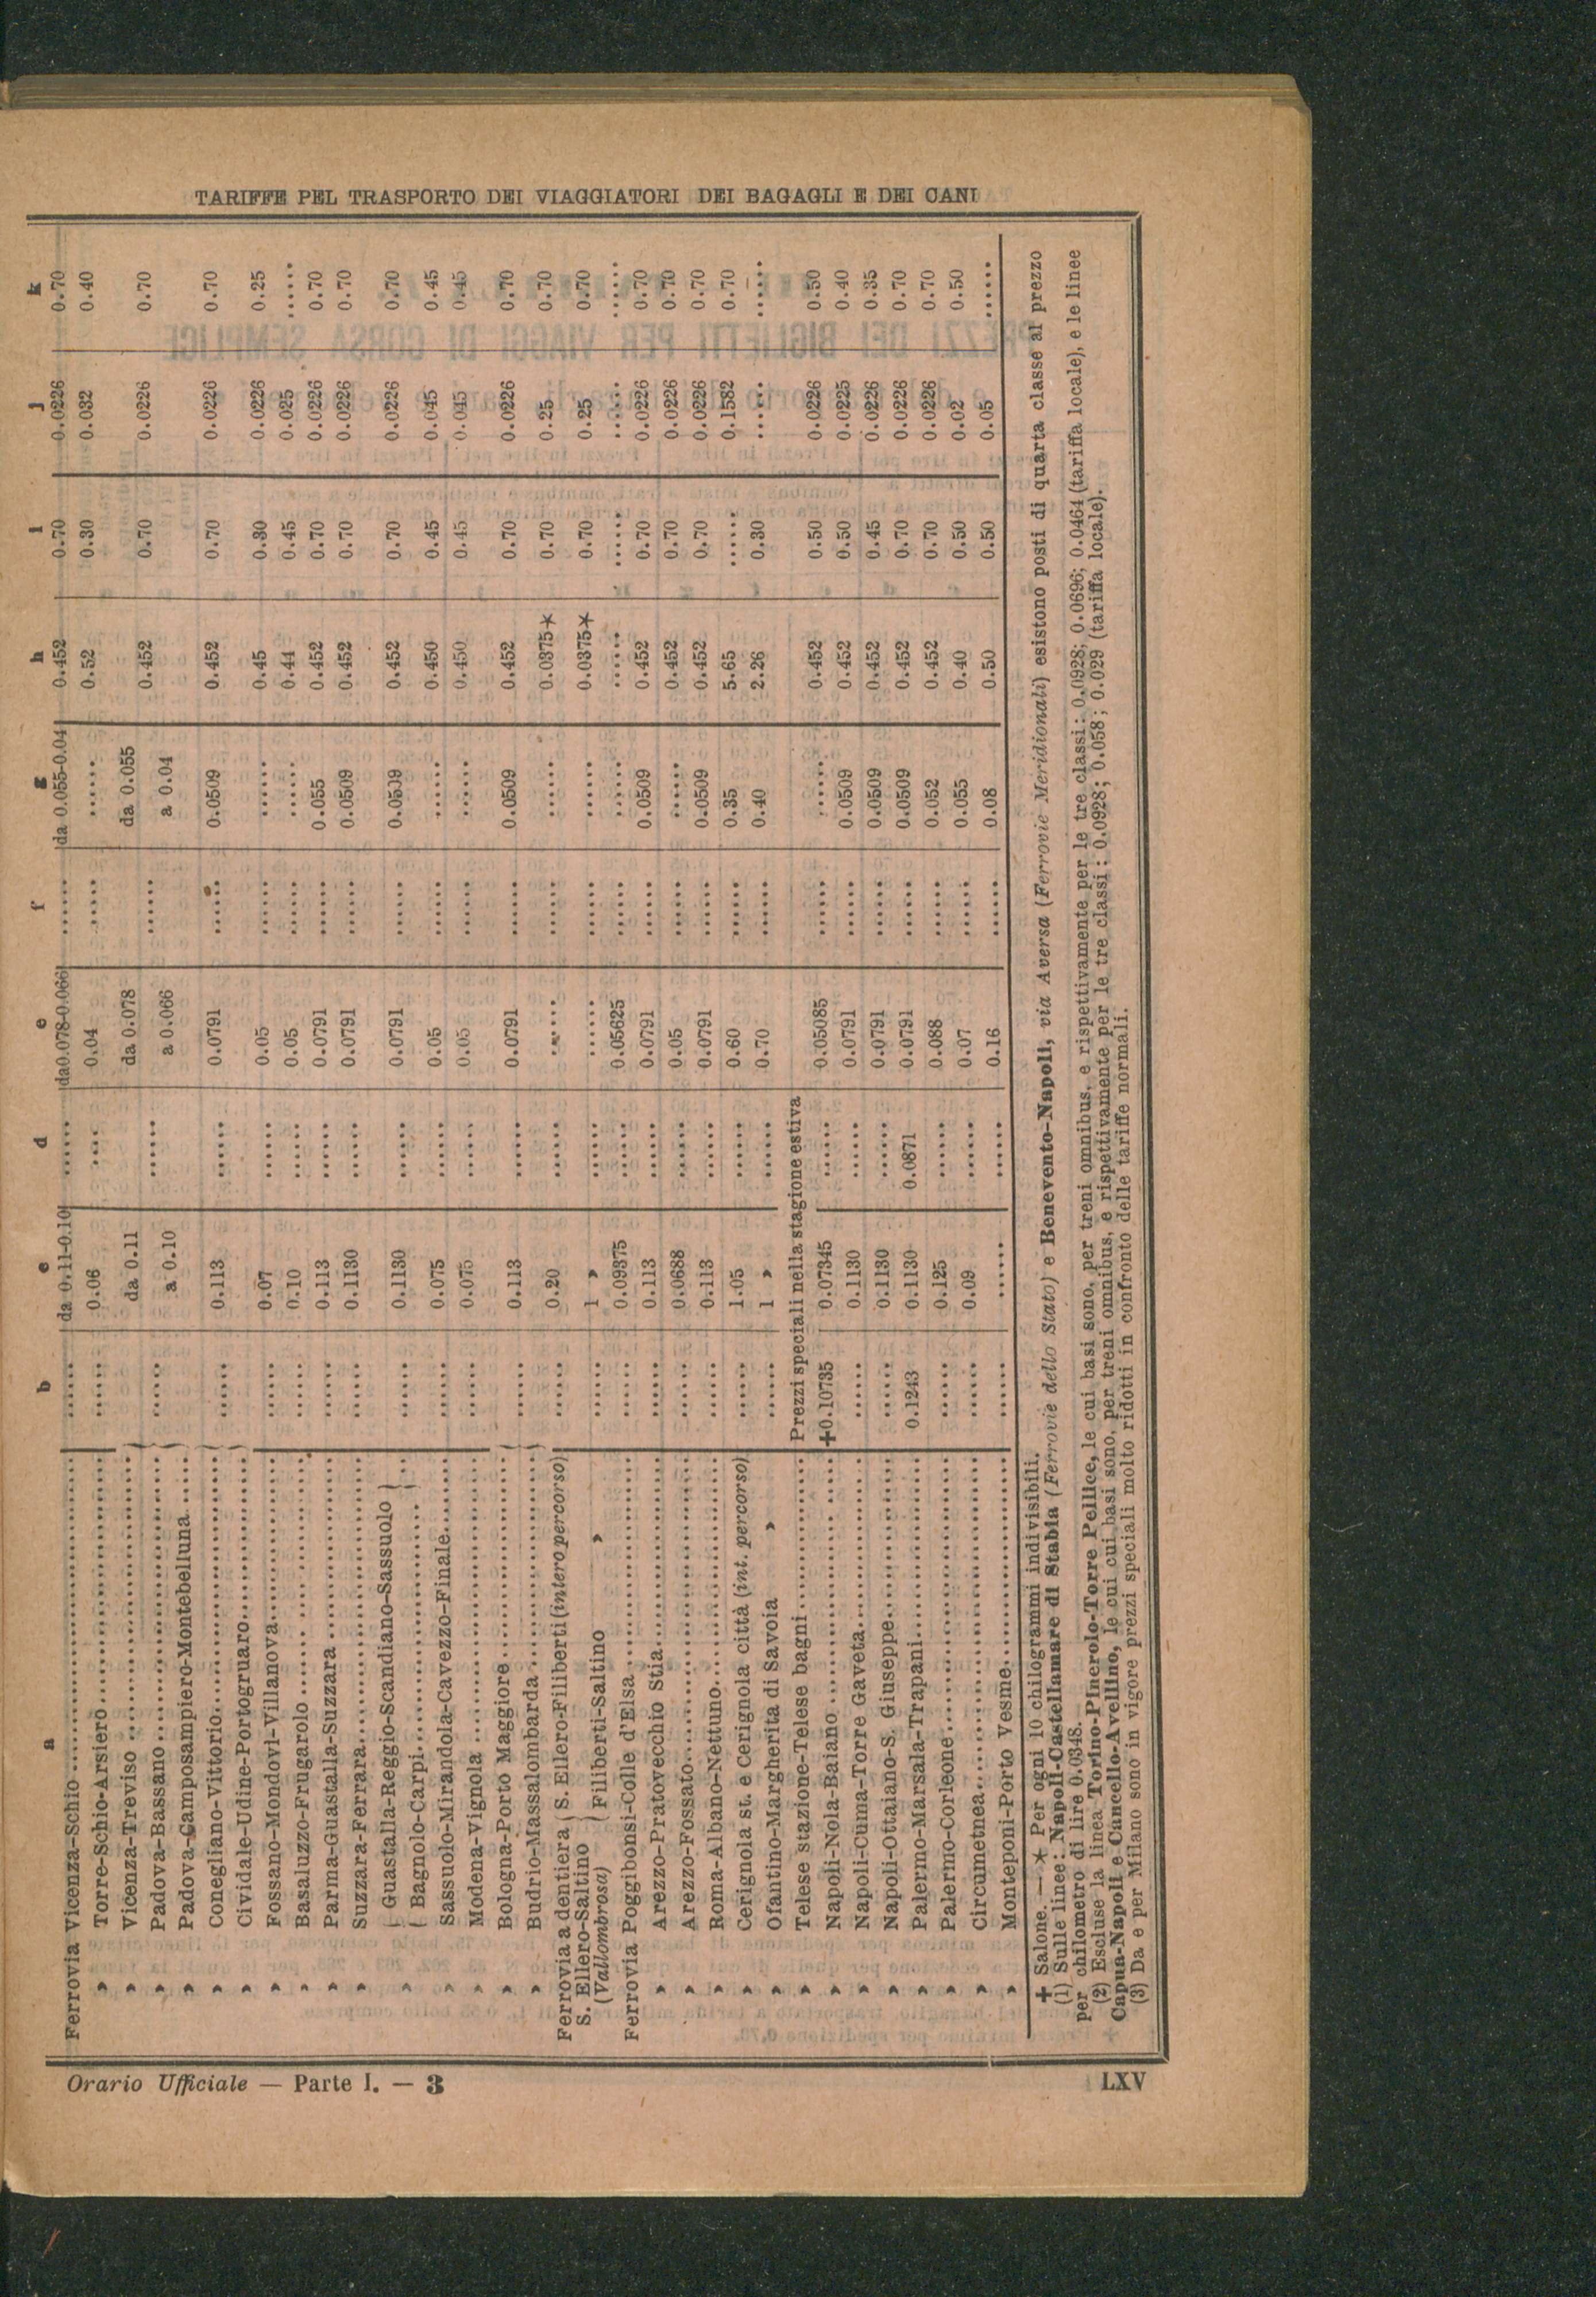 TARIFFE PEL TRASPORTO DEI VIAGGIATORI DEI BAGAGLI E DEI CANI
a b c d e f g h i j k
Ferrovia Vicenza-Schio ...... da 0.11-0.10 ...... da 0.078-0.066 ...... da 0.055-0.04 0.452 0.70 0.0226 0.70
» Torre-Schio-Arsiero ...... 0.06 .... 0.04 ...... ...... 0.52 0.30 0.032 0.40
» Vicenza-Treviso ...... da 0.11 da 0.078 da 0.055
» Padova-Bassano ...... ...... ...... ...... 0.452 0.70 0.0226 0.70
» Padova-Camposampiero-Montebelluna ..... a 0.10 a 0.066 a 0.04
» Conegliano-Vittorio ...... ...... 0.113 ...... 0.0791 ...... 0.0509 0.452 0.70 0.0226 0.70
» Cividale-Udine-Portogruaro ......
» Fossano-Mondovi-Villanova ...... ...... 0.07 ...... 0.05 ...... ...... 0.45 0.30 0.0226 0.25
» Basaluzzo-Frugarolo ...... ...... 0.10 ...... 0.05 ...... ...... 0.44 0.45 0.025 ......
» Parma-Guastalla-Suzzara ...... ...... 0.113 ...... 0.0791 ...... 0.055 0.452 0.70 0.0226 0.70
» Suzzara-Ferrara ...... ...... 0.1130 ...... 0.0791 ...... 0.0509 0.452 0.70 0.0226 0.70
» Guastalla-Reggio-Scandiano-Sassuolo ...... 0.1130 ...... 0.0791 ...... 0.0509 0.452 0.70 0.0226 0.70
Bagnolo-Carpi ......
» Sassuolo-Mirandola-Cavezzo-Finale ...... ...... 0.075 ...... 0.05 ...... ...... 0.450 0.45 0.045 0.45
» Modena-Vignola ...... ...... 0.075 ...... 0.05 ...... ...... 0.450 0.45 0.045 0.45
» Bologna-Porto Maggiore ...... ...... 0.113 ...... 0.0791 ...... 0.0509 0.452 0.70 0.0226 0.70
» Budrio-Massalombarda ......
Ferrovia a dentiera S. Ellero-Filiberti (intero percorso) ...... 0.20 ...... ...... ...... ...... 0.0375★ 0.70 0.25 0.70
S. Ellero-Saltino
(Vallombrosa) Filiberti-Saltino » ...... 1 » ...... ...... ...... ...... 0.0375★ 0.70 0.25 0.70
Ferrovia Poggibonsi-Colle d'Elsa ...... ...... 0.09375 ...... 0.05625 ...... ...... ...... ...... ...... ......
» Arezzo-Pratovecchio Stia ...... ...... 0.113 ...... 0.0791 ...... 0.0509 0.452 0.70 0.0226 0.70
» Arezzo-Fossato ...... ...... 0.0688 ...... 0.05 ...... ...... 0.452 0.70 0.0226 0.70
» Roma-Albano-Nettuno ...... ...... 0.113 ...... 0.0791 ...... 0.0509 0.452 0.70 0.0226 0.70
» Cerignola st. e Cerignola città (int. percorso) ...... 1.05 ...... 0.60 ...... 0.35 5.65 ...... 0.1582 0.70
» Ofantino-Margherita di Savoia » ...... 1 » ...... 0.70 ...... 0.40 2.26 0.30 ...... ......
» Telese stazione-Telese bagni ...... Prezzi speciali nella stagione estiva
» Napoli-Nola-Baiano ...... ✚0.10735 0.07345 ...... 0.05085 ...... ...... 0.452 0.50 0.0226 0.50
» Napoli-Cuma-Torre Gaveta ...... ...... 0.1130 ...... 0.0791 ...... 0.0509 0.452 0.50 0.0225 0.40
» Napoli-Ottaiano-S. Giuseppe ...... ...... 0.1130 ...... 0.0791 ...... 0.0509 0.452 0.45 0.0226 0.35
» Palermo-Marsala-Trapani ...... 0.1243 0.1130 0.0871 0.0791 ...... 0.0509 0.452 0.70 0.0226 0.70
» Palermo-Corleone ...... ...... 0.125 ...... 0.088 ...... 0.052 0.452 0.70 0.0226 0.70
» Circumetnea ...... ...... 0.09 ...... 0.07 ...... 0.055 0.40 0.50 0.02 0.50
» Monteponi-Porto Vesme ...... ...... ...... ...... 0.16 ...... 0.08 0.50 0.50 0.05 ......
✚ Salone. — ★ Per ogni 10 chilogrammi indivisibili.
(1) Sulle linee: Napoli-Castellamare di Stabia (Ferrovie dello Stato) e Benevento-Napoli, via Aversa (Ferrovie Meridionali) esistono posti di quarta classe al prezzo
per chilometro di lire 0.0348.
(2) Escluse la linea Torino-Pinerolo-Torre Pellice, le cui basi sono, per treni omnibus, e rispettivamente per le tre classi: 0.0928; 0.0696; 0.0464 (tariffa locale), e le linee
Capua-Napoli e Cancello-Avellino, le cui cui basi sono, per treni omnibus, e rispettivamente per le tre classi: 0.0928; 0.058; 0.029 (tariffa locale).
(3) Da e per Milano sono in vigore prezzi speciali molto ridotti in confronto delle tariffe normali.
Orario Ufficiale — Parte I. — 3
LXV